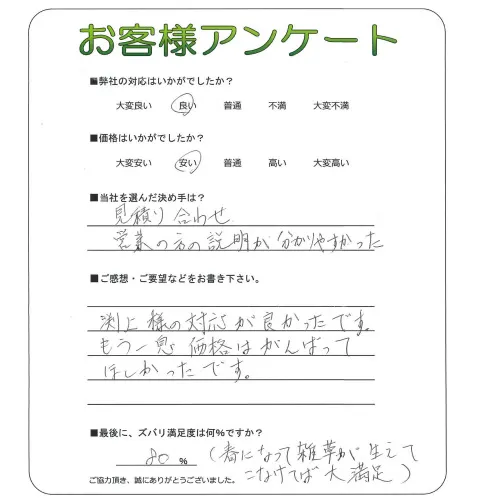 お客様アンケート
■弊社の対応はいかがでしたか？
大変良い 良い 普通 不満 大変不満
■価格はいかがでしたか？
大変安い 安い 普通 高い 大変高い
■当社を選んだ決め手は？
見積り合わせ
営業の方の説明が分かりやすかった
■ご感想・ご要望などをお書き下さい。
渕上様の対応が良かったです。
もう一息価格はがんばって
ほしかったです。
■最後に、ズバリ満足度は何％ですか？
80 % (春になって雑草が生えて
こなければ大満足)
ご協力頂き、誠にありがとうございました。